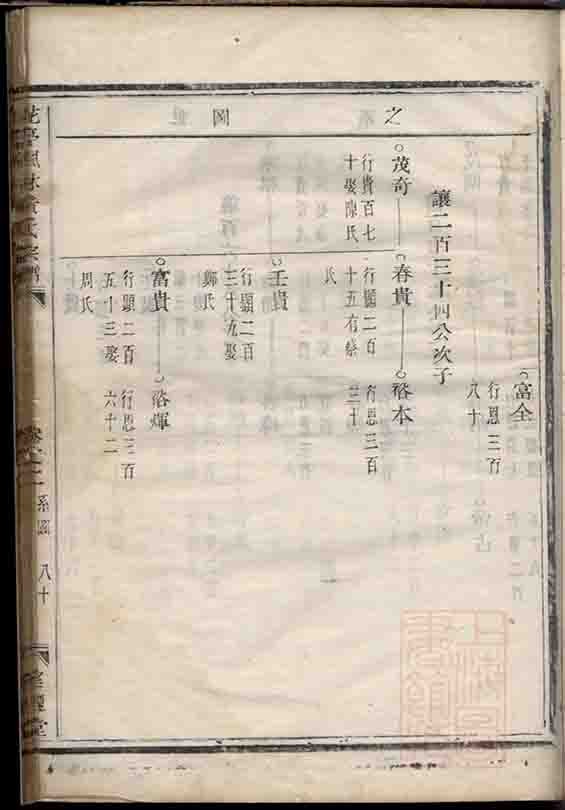 之 圖
富全
行恩三百
八十
讓二百三十四公次子
茂奇
行貴百七
十娶陳氏
春貴
行顯二百
十五有
氏
裕本
行恩三百
三十
壬貴
行顯二百
三十九娶
鄭氏
富貴
行顯二百
五十三娶
周氏
裕輝
行恩三百
六十二
系圖
八十
堂